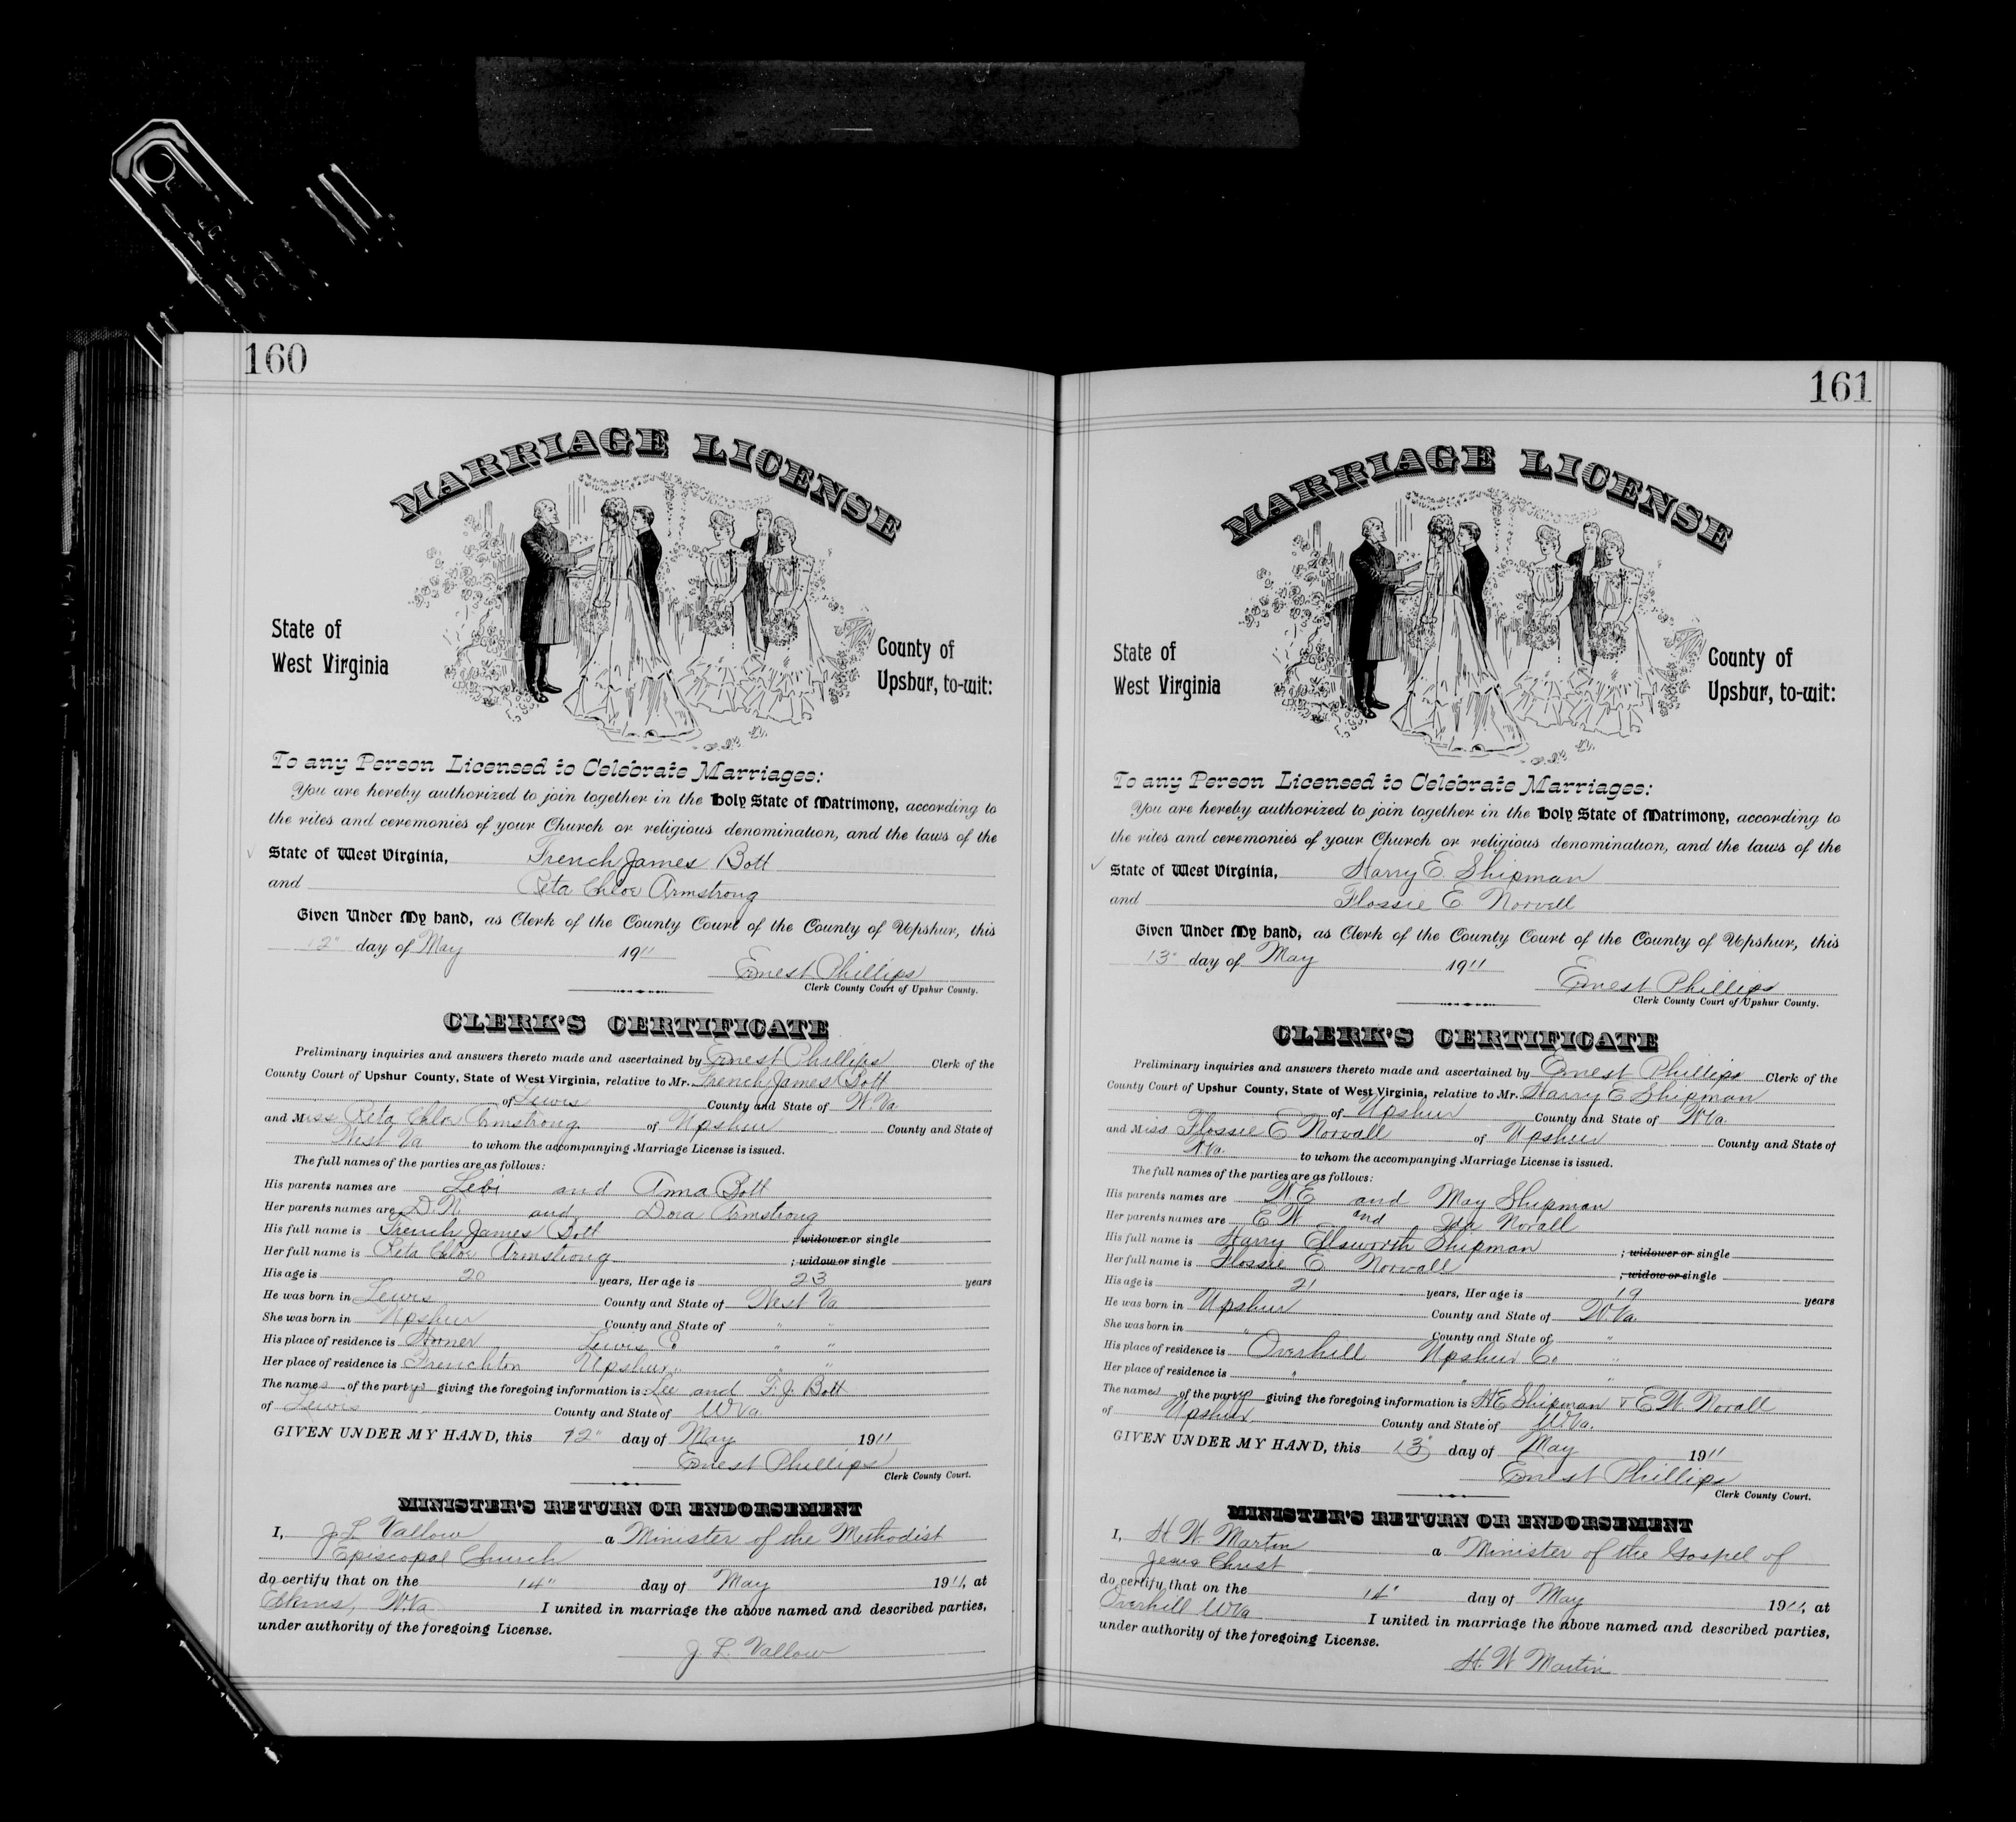 160
MARRIAGE LICENSE
State of
West Virginia
County of
Upshur, to-wit:
To any Person Licensed to Celebrate Marriages:
You are hereby authorized to join together in the Holy State of Matrimony, according to
the rites and ceremonies of your Church or religious denomination, and the laws of the
State of West Virginia, French James Bott
and Reta Chloe Armstrong
Given Under My hand, as Clerk of the County Court of the County of Upshur, this
12" day of May 1911
Ernest Phillips
Clerk County Court of Upshur County.
CLERK'S CERTIFICATE
Preliminary inquiries and answers thereto made and ascertained by Ernest Phillips Clerk of the
County Court of Upshur County, State of West Virginia, relative to Mr. French James Bott
of Lewis County and State of W.Va.
and Miss Reta Chloe Armstrong of Upshur County and State of
West Va to whom the accompanying Marriage License is issued.
The full names of the parties are as follows:
His parents names are and Anna Bott
Her parents names are D.N. and Dora Armstrong
His full name is French James Bott ; widower or single
Her full name is Reta Chloe Armstrong ; widow or single
His age is 20 years, Her age is 23 years
He was born in Lewis County and State of West Va
She was born in Upshur County and State of " "
His place of residence is Horner Lewis Co " "
Her place of residence is Frenchton Upshur " " "
The names of the partys giving the foregoing information is: Lee and F. J. Bott
of Lewis County and State of W Va.
GIVEN UNDER MY HAND, this 12" day of May 1911
Ernest Phillips
Clerk County Court.
MINISTER'S RETURN OR ENDORSEMENT
I, J. L. Vallow a Minister of the Methodist
Episcopal Church
do certify that on the 14" day of May 1911, at
Elkins, W.Va I united in marriage the above named and described parties,
under authority of the foregoing License.
J. L. Vallow
161
MARRIAGE LICENSE
State of
West Virginia
County of
Upshur, to-wit:
To any Person Licensed to Celebrate Marriages:
You are hereby authorized to join together in the Holy State of Matrimony, according to
the rites and ceremonies of your Church or religious denomination, and the laws of the
State of West Virginia, Harry E. Shipman
and Flossie E Norvell
Given Under My hand, as Clerk of the County Court of the County of Upshur, this
13" day of May 1911
Ernest Phillips
Clerk County Court of Upshur County.
CLERK'S CERTIFICATE
Preliminary inquiries and answers thereto made and ascertained by Ernest Phillips Clerk of the
County Court of Upshur County, State of West Virginia, relative to Mr. Harry E Shipman
of Upshur County and State of W.Va.
and Miss Flossie E Norvall of Upshur County and State of
W.Va. to whom the accompanying Marriage License is issued.
The full names of the parties are as follows:
His parents names are W.E and May Shipman
Her parents names are E W and Ida Norall
His full name is Harry Ellsworth Shipman ; widower or single
Her full name is Flossie E Norvall ; widow or single
His age is 21 years, Her age is 19 years
He was born in Upshur County and State of W.Va.
She was born in " County and State of "
His place of residence is Overhill Upshur Co. "
Her place of residence is " " "
The names of the partys giving the foregoing information is H E Shipman & E W. Norall
of Upshur County and State of W.Va.
GIVEN UNDER MY HAND, this 13" day of May 1911
Ernest Phillips
Clerk County Court.
MINISTER'S RETURN OR ENDORSEMENT
I, H. W. Martin a Minister of the Gospel of
Jesus Christ
do certify that on the 14" day of May 1911, at
Overhill W Va I united in marriage the above named and described parties,
under authority of the foregoing License.
H. W Martin